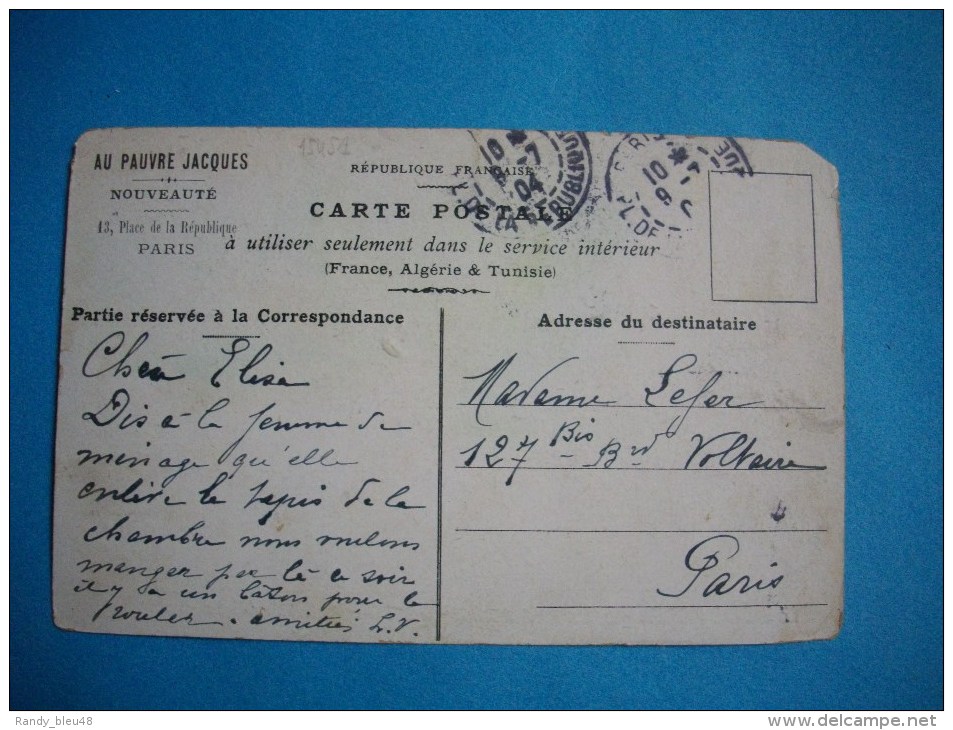 15451
AU PAUVRE JACQUES
NOUVEAUTÉ
13, Place de la République
PARIS
RÉPUBLIQUE FRANÇAISE
CARTE POSTALE
à utiliser seulement dans le service intérieur
(France, Algérie & Tunisie)
10 *
8 - 7
04
PL. DE LA REPUBLIQUE
PARIS
10 *
PL. DE
Partie réservée à la Correspondance
Chère Elisa
Dis à la femme de
ménage qu'elle
enlève le tapis de la
chambre nous
manger là ce soir
il y a un bâton pour le
rouler. amitiés L.V.
Adresse du destinataire
Madame Lefer
127 Bis Brd Voltaire
Paris
Randy_bleu48
delcampe.net